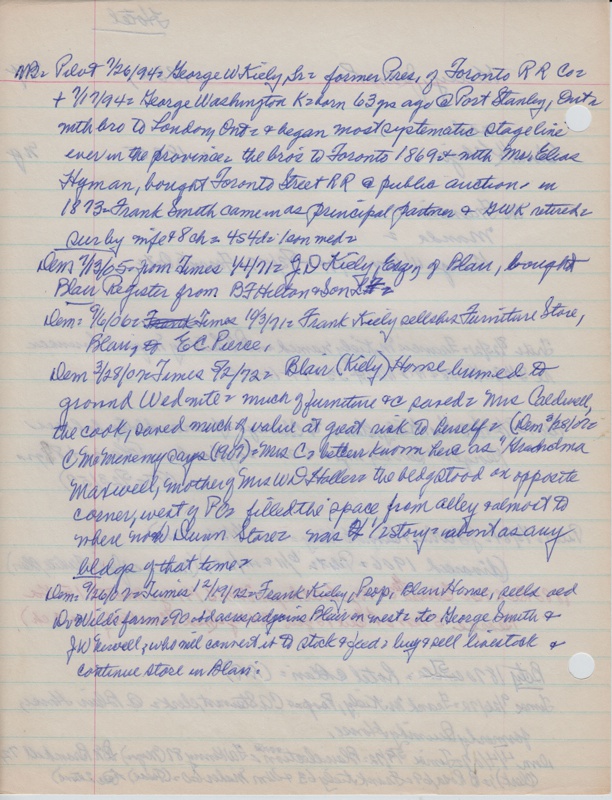 Hotel
NB= Pilot 7/26/94= George W Kiely, Sr= former Pres, of Toronto R R Co=
+ 7/17/94= George Washington K= born 63 yrs ago @ Port Stanley, Ont=
with bro to London, Ont= & began most systematic stage line
ever in the province= the bros to Toronto 1869 & with Mr. Elias
Hyman, bought Toronto Street RR @ public auction= in
1873= Frank Smith came in as principal partner & GWK retired=
sur by wife & 8 ch= 4s 4d= 1 son med=
Dem 7/13/05= from Times 1/4/71= J D Kiely, Esq, of Blair, bought
Blair Register from B F Hilton & Son
Dem= 9/6/06= Times 10/3/71= Frank Kiely sells his Furniture Store,
Blair, to E C Pierce.
Dem 3/28/07= Times 5/2/72= Blair (Kiely) House burned to
ground Wed nite= much of furniture &c saved= Mrs Caldwell,
the cook, saved much of value at great risk to herself= (Dem 3/28/07=
C McMenemy says (1907)= Mrs C= better known here as "Grandma
Maxwell, mother of Mrs W D Haller= the bldg stood on opposite
corner, west of PO= filled the space from alley & almost to
where now Dunn Store= was 2 1/2 story= about as any
bldgs of that time=
Dem= 9/26/07= Times 12/19/72= Frank Kiely, Prop, Blair House, sells old
Dr Wilds farm= 90 odd acres adjoins Blair on west= to George Smith &
J W Newell, who will convert it to stock & feed= buy & sell livestock &
continue store in Blair.